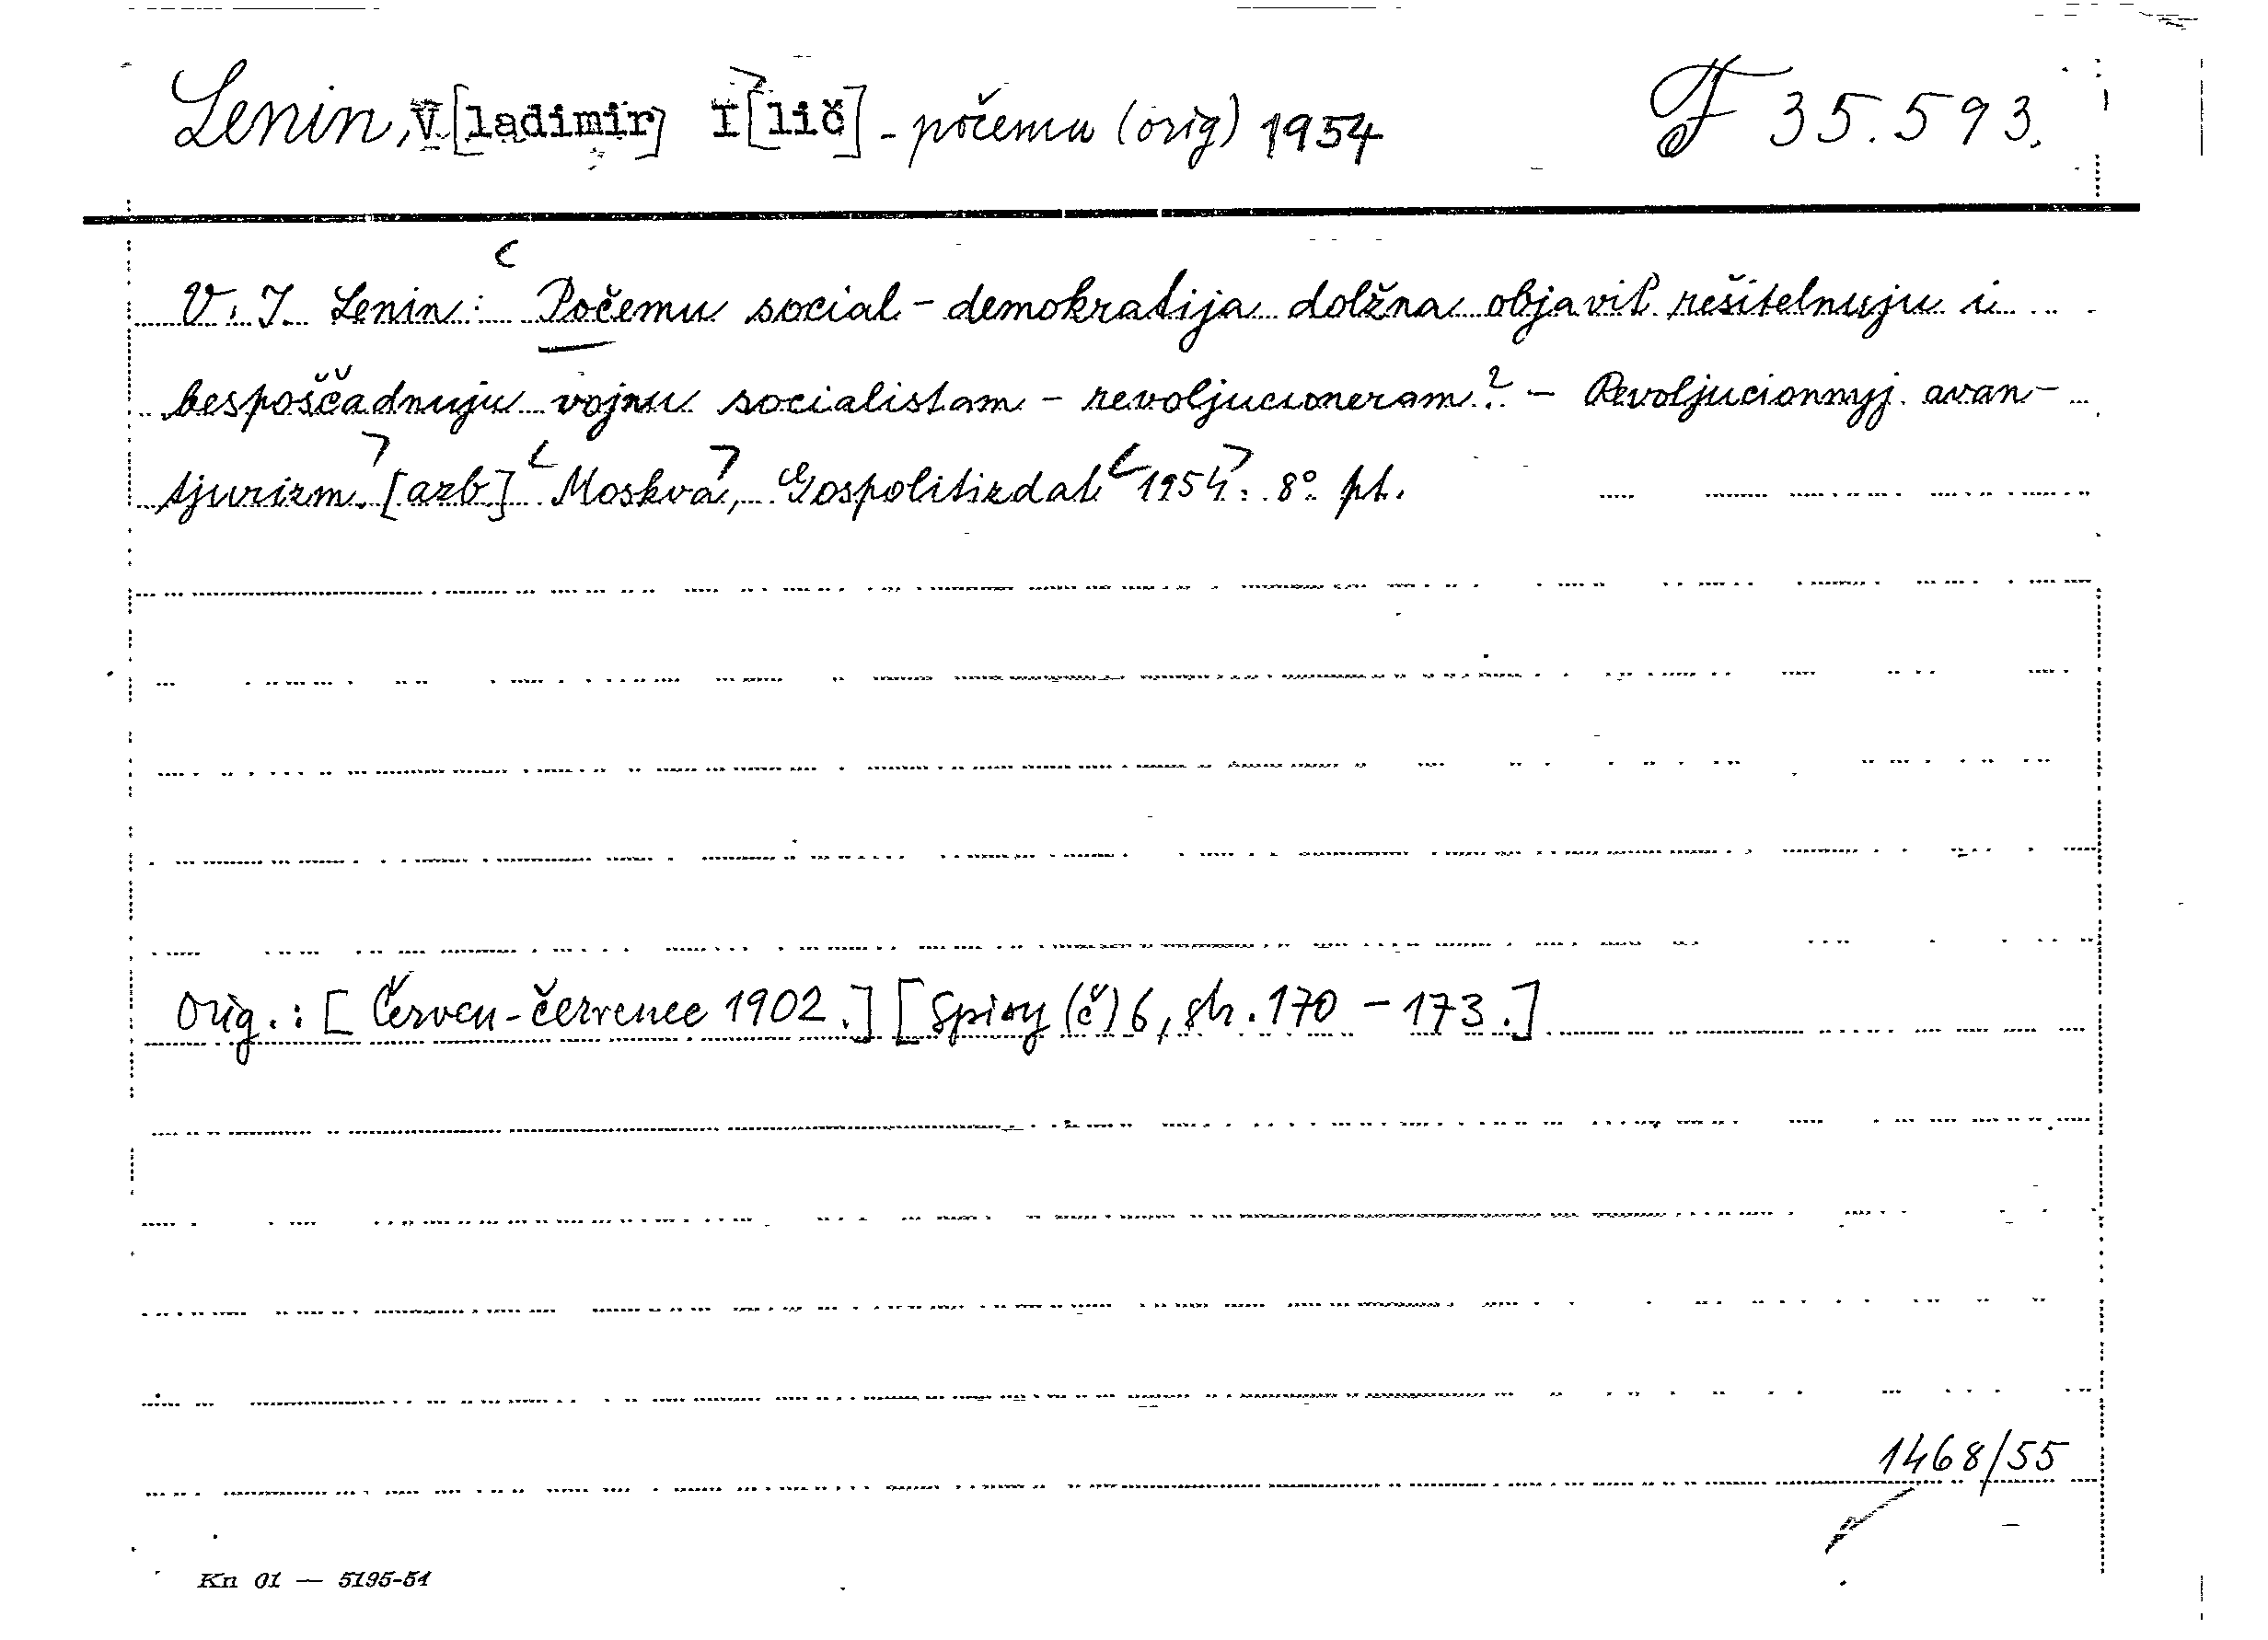 Lenin, V[ladimir] I[lič] - počemu (orig) 1954 F 35.593.
V. I. Lenin: Počemu social-demokratija dolžna objavit rešitelnuju i
bespoščadnuju vojnu socialistam-revoljucioneram? - Revoljucionnyj avan-
tjurizm. [azb.] Moskva, Gospolitizdat 1954. 8° pt.
Orig.: [Červen-červenec 1902.] [Spisy (č) 6, str. 170 - 173.]
1468/55
Kn 01 — 5195-54